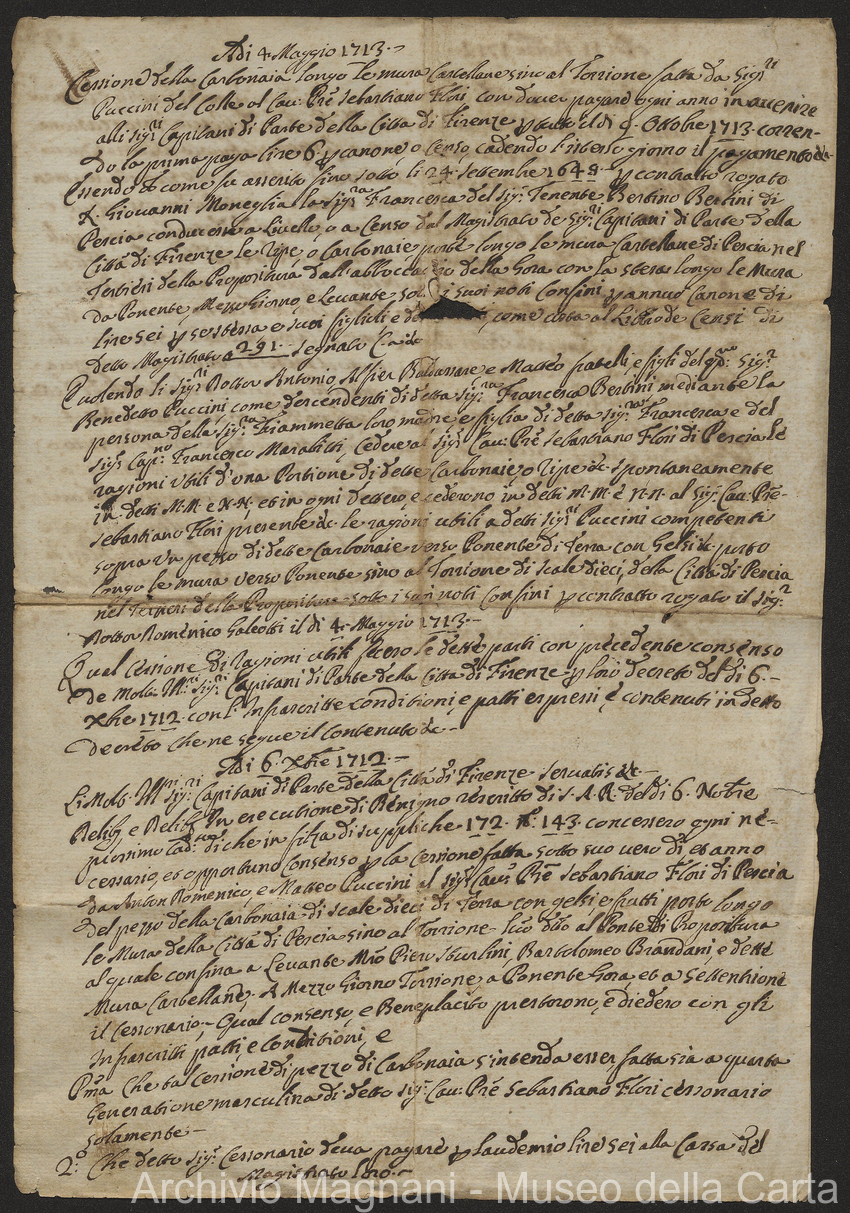 Adi 4 Maggio 1713.
Cessione della Carbonaia longo le mura Castellane sino al Torrione fatta da Sig.ri
Puccini del Colle al Cau: Prē Sebastiano Flori con douer pagare ogni anno in auenire
alli sig.ri Capitani di Parte della Città di Firenze p tutto il dì 4. Ottobre 1713. corren-
do la prima paga lire 6 p canone, o Censo cadendo l'istesso giorno il pagamento &c.
Essendo che come fu asserito sino sotto li 24. settembre 1648. p contratto rogato
Giovanni Moneglia la sig.ra Francesca del sig.r Tenente Bertino Bertini di
Pescia conducesse a Liuello, o a Censo dal Magistrato de Sig.ri Capitani di Parte della
Città di Firenze le Ripe, o Carbonaie poste longo le mura Castellane di Pescia nel
Tertieri della Propositura dall'abboccatoro della Gora con la stessa longo le Mura
da Ponente, Mezzo Giorno, e Leuante, sotto i suoi noti Confini, p annuo Canone di
lire sei p se stessa e suoi figlioli e de come costa al Libro de Censi di
detto Magistrato a 291. segnato
E uolendo li sig.ri Dottor Antonio, Alfier Baldassare e Matteo fratelli, e figli del qm: Sig.r
Benedetto Puccini come descendenti di detta sig.ra Francesca Bertini mediante la
persona della sig.ra Fiammetta loro madre e figlia di detta sig.ra Francesca e del
sig.r Cap.no Francesco Marabitti, Cedere al sig.r Cau: Prē Sebastiano Flori di Pescia le
ragioni utili d'una Portione di dette Carbonaie, o ripe &c spontaneamente
in detti M.M. e N.N. et in ogni cederono in detti M.M. e N.N. al sig.r Cau: Prē
Sebastiano Flori presente &c le ragioni utili a detti sig.ri Puccini competenti
sopra un pezzo di dette Carbonaie uerso Ponente di terra con Gelsi &c posto
longo le mura uerso Ponente sino al Torrione di scale dieci, della Città di Pescia
nel Terzieri della Propositura sotto i suoi noti Confini p contratto rogato il sig.r
Dottor Domenico Galeotti il dì 4. Maggio 1713.
Qual Cessione di ragioni utili fecero le dette parti con precedente consenso
de Molto Ill.ri Sig.ri Capitani di Parte della Città di Firenze p loro decreto del dì 6.
Xbre 1712. con l'Infrascritte conditioni, e patti espressi, e contenuti in detto
decreto che ne segue il contenuto &c.
Adi 6. Xbre 1712.
Li Molto Ill.ri Sig.ri Capitani di Parte della Città di Firenze seruatis &c.
Delib. e Delib. In executione di Benigno rescritto di S.A.R. del dì 6. Nobre
prossimo di che in filza di suppliche 172. N. 143. concessero ogni ne-
cessario, et opportuno Consenso p la cessione fatta sotto suo uero dì et anno
da Anton Domenico, e Matteo Puccini al sig.r Cau: Prē Sebastiano Flori di Pescia
del pezzo della Carbonaia di scale dieci di terra con gelsi e frutti posto longo
le Mura della Città di Pescia sino al Torrione l.o d.to al Ponte di Propositura
al quale confina a Leuante M.ro Piero Sturlini, Bartolomeo Brandani, e dette
Mura Castellane, A Mezzo Giorno Torrione, a Ponente Gora, et a Settentrione
il Cessonario, Qual consenso, e Beneplacito prestorono, e diedero con gli
Infrascritti patti, e Conditioni, e
P.ma Che tal cessione di pezzo di Carbonaia s'intenda esser fatta sia a quarta
Generatione masculina di detto sig.r Cau: Prē Sebastiano Flori cessonario
solamente.
2.o Che detto sig.r Cessonario deua pagare p laudemio lire sei alla Cassa del
Magistrato loro.
Archivio Magnani - Museo della Carta